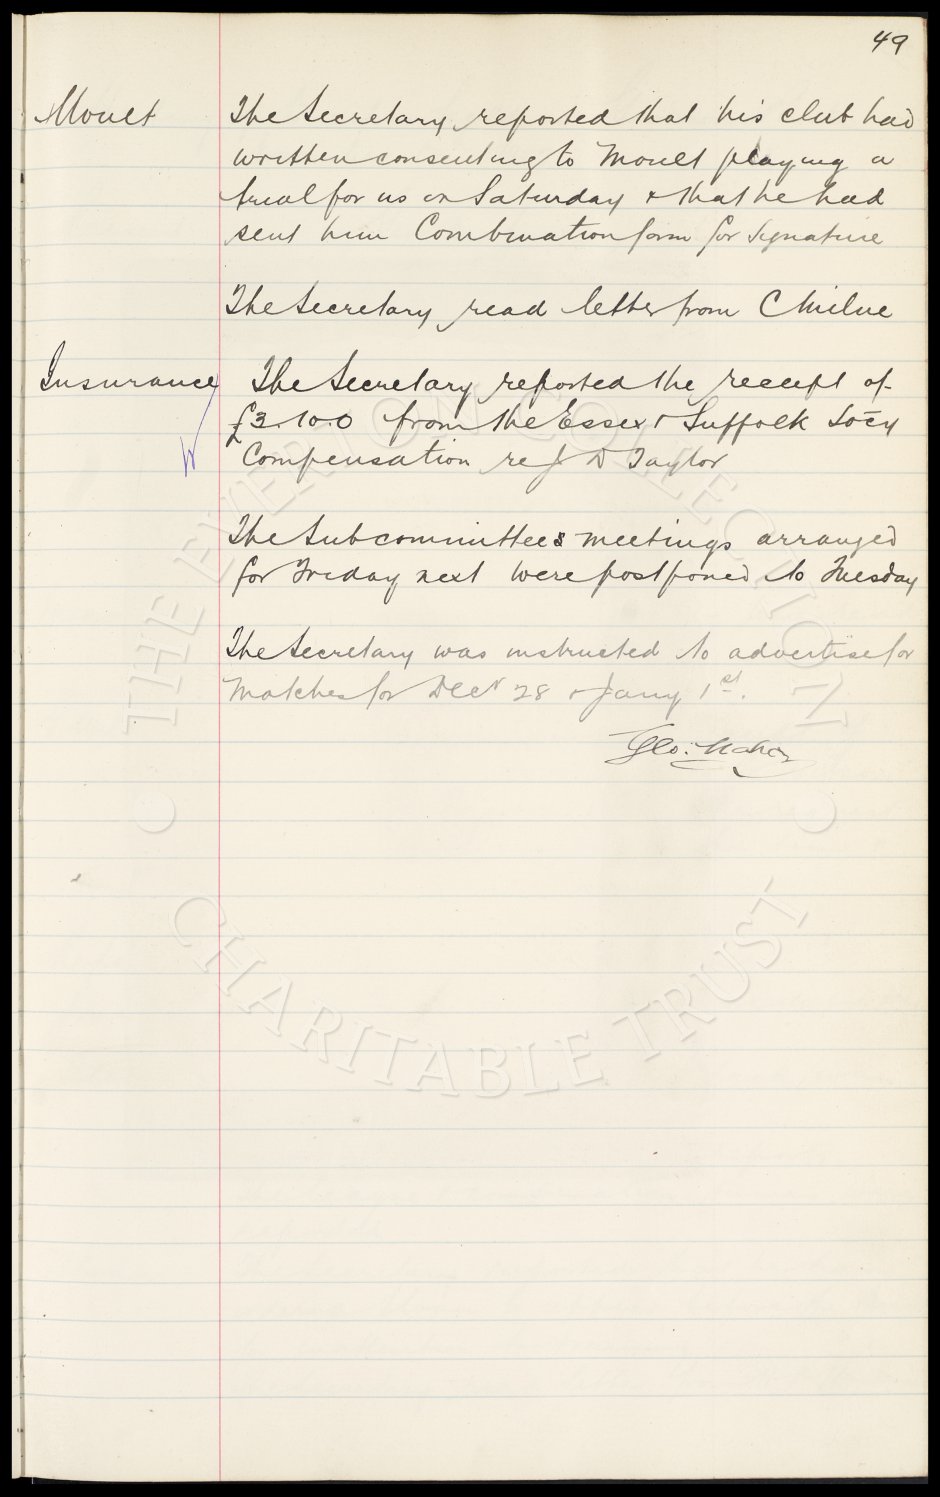 49
Moult
The Secretary reported that his club had
written consenting to Moult playing a
trial for us on Saturday & that he had
sent him Combination form for signature
The Secretary read letter from C Milne
Insurance
The Secretary reported the receipt of
£3.10.0 from the Essex & Suffolk Socy
Compensation re J D Taylor
The Subcommittees meetings arranged
for Friday next were postponed to Tuesday
The Secretary was instructed to advertise for
Matches for Decr 28 & Jany 1st.
Geo. Mahon
THE EVERTON COLLECTION
CHARITABLE TRUST